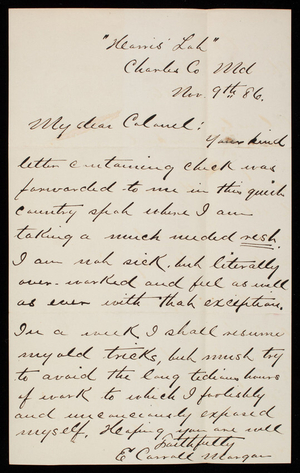 "Harris' Lot"
Charles Co Md
Nov. 9th. 86.
My dear Colonel:
Your kind
letter containing check was
forwarded to me in this quiet
country spot where I am
taking a much needed rest.
I am not sick, but literally
over-worked and feel as well
as ever with that exception.
In a week I shall resume
my old tricks, but must try
to avoid the long tedious hours
of work to which I foolishly
and unconsciously exposed
myself. Hoping you are well
Faithfully
E Carroll Morgan